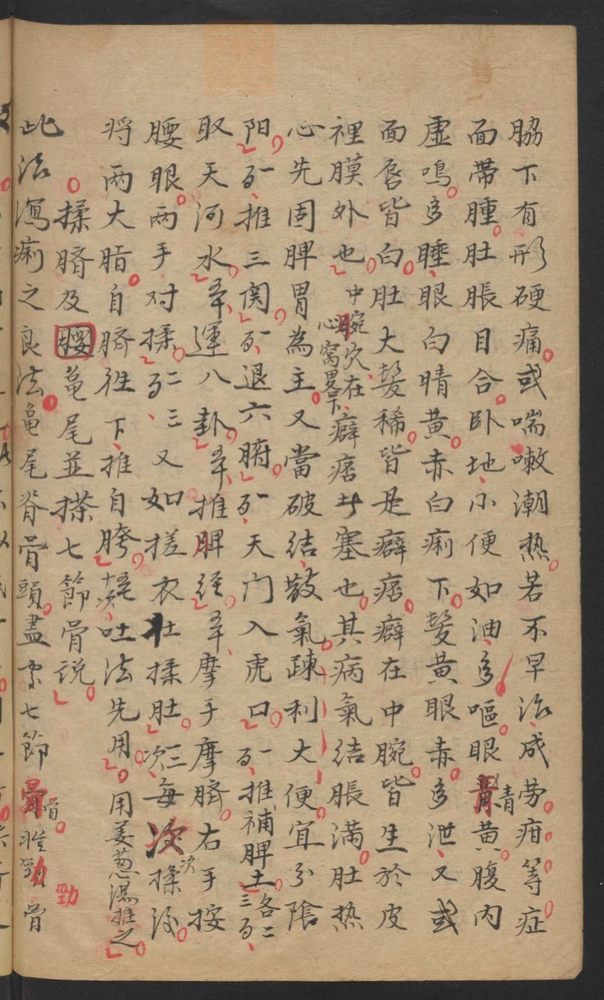 脇下有形硬痛或喘嗽潮熱若不早治成労疳等症
面帶腫肚脹目合卧地小便如油多嘔眼青黄腹内
虚鳴多睡眼白晴黄赤白痢下髮黄眼赤多泄又或
面唇皆白肚大髮稀皆是癖痞癖在中腕皆生於皮
裡膜外也中腕穴在心窩下癖痞塞也其病氣結脹満肚热
心先固脾胃為主又當破結散氣疎利大便宜分隂
阳推三関退六腑天门入虎口推補脾土各二三
取天河水運八卦推脾经摩手摩臍右手按
腰眼两手对揉二三又如搓衣壮揉肚二三次每次揉後
将两大指自臍往下推自胯吐法先用用姜葱湯推之
揉臍及腰龜尾並搽七節骨説
此法瀉痢之良法龜尾脊骨頭盡處七節骨骨